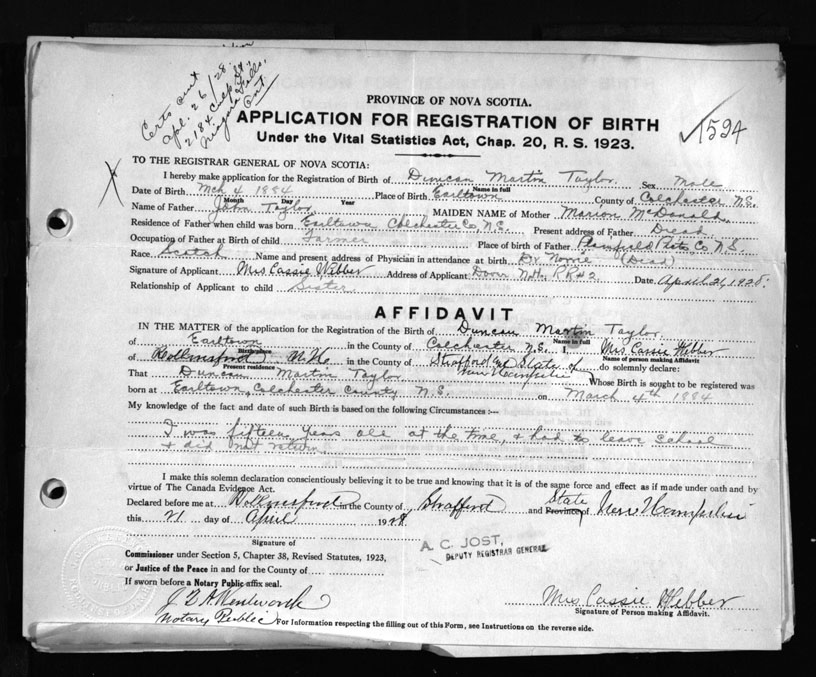 Certs sent
Apl. 26/28
2184 Culp St.,
Niagara Falls,
Ont
PROVINCE OF NOVA SCOTIA.
APPLICATION FOR REGISTRATION OF BIRTH
Under the Vital Statistics Act, Chap. 20, R. S. 1923.
1594
TO THE REGISTRAR GENERAL OF NOVA SCOTIA:
I hereby make application for the Registration of Birth of Duncan Martin Taylor Sex Male
Name in full
Date of Birth Mch 4 1884 Place of Birth Earltown County of Colchester N.S.
Month Day Year
Name of Father John Taylor MAIDEN NAME of Mother Marion McDonald
Residence of Father when child was born Earltown Colchester Co N.S. Present address of Father Dead
Occupation of Father at Birth of child Farmer Place of birth of Father Plainfield Pictou Co N.S.
Race. Scotch Name and present address of Physician in attendance at birth Dr Norrie (Dead)
Signature of Applicant Mrs Cassie Webber Address of Applicant Dover N.H. RR#2 Date April 21, 1928.
Relationship of Applicant to child Sister
AFFIDAVIT
IN THE MATTER of the application for the Registration of the Birth of Duncan Martin Taylor
Name in full
of Earltown in the County of Colchester N.S. I, Mrs Cassie Webber
Birthplace Name of person making Affidavit
of Rollinsford N.H. in the County of Strafford and State of New Hampshire do solemnly declare:
Present residence
That Duncan Martin Taylor Whose Birth is sought to be registered was
born at Earltown, Colchester County N.S. on March 4th 1884
My knowledge of the fact and date of such Birth is based on the following Circumstances :—
I was fifteen years old at the time, & had to leave school
& did not return
I make this solemn declaration conscientiously believing it to be true and knowing that it is of the same force and effect as if made under oath and by
virtue of The Canada Evidence Act.
Declared before me at Rollinsford in the County of Strafford and Province of State New Hampshire
this 21 day of April 1928
Signature of
Commissioner under Section 5, Chapter 38, Revised Statutes, 1923,
or Justice of the Peace in and for the County of
If sworn before a Notary Public affix seal.
A. C. JOST,
DEPUTY REGISTRAR GENERAL
Wentworth
Notary Public
Mrs Cassie Webber
Signature of Person making Affidavit.
For Information respecting the filling out of this Form, see Instructions on the reverse side.